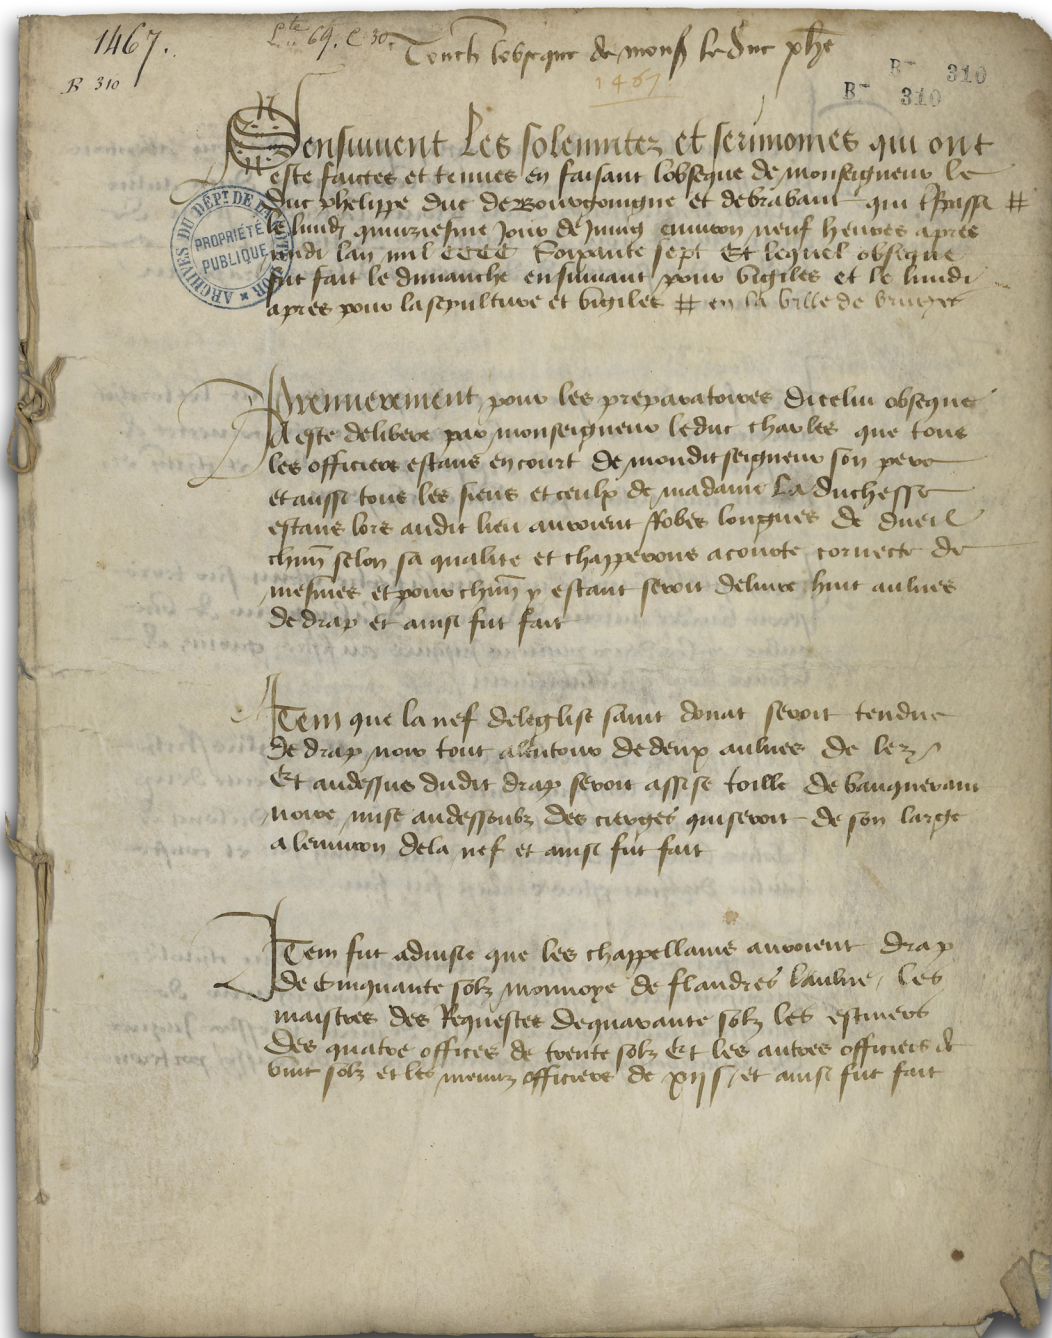 1467.
Lte 69. C. 30.
Touch lobseque de mons le duc phe
B 310
1467
B 310
B 310
Sensuivent Les solennitez et serimonies qui ont
este faictes et tenues en faisant lobseque de monseigneur le
duc phelippe duc de Bourgoingne et de brabant qui t͞passa #
le lundi quinziesme jour de Juing environ neuf heures apres
midi lan mil CCCC Soixante sept Et lequel obseque
fut fait le dimanche ensuivant pour vigiles et le lundi
apres pour la sepulture et vigiles # en la ville de bruges
ARCHIVES DU DÉPT. DE LA CÔTE D'OR
PROPRIÉTÉ
PUBLIQUE
Premierement pour les preparatoires dicelui obseque
A este delibere par monseigneur le duc charles que tous
les officiers estans en court de mondit seigneur son pere
et aussi tous les siens et ceulx de madame La duchesse
estans lors audit lieu auroient Robes longues de dueil
chun͞ selon sa qualite et chapperons a courte cornecte de
mesmes et pour chun͞ y estant seroit delivre huit aulnes
de drap et ainsi fut fait
Item que la nef de leglise saint donat seroit tendue
de drap noir tout alentour de deux aulnes de lez
Et audessus dudit drap seroit assise toille de bauquerant
noire mise audessoubz des cierges qui seroit de son large
a lenviron de la nef et ainsi fut fait
Item fut advise que les chappellains auroient drap
de Cinquante solz monnoye de flandres laulne / Les
maistres des Requestes de quarante solz les escuiers
des quatre offices de trente solz Et les autres officiers de
vint solz et les menuz officiers de xij s / et ainsi fut fait